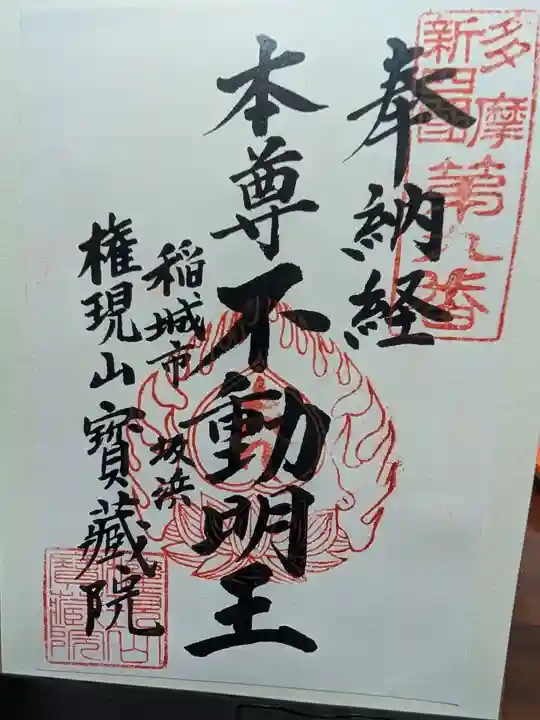 多摩
新四國
第九番
奉納経
本尊不動明王
稲城市坂浜
権現山寳藏院